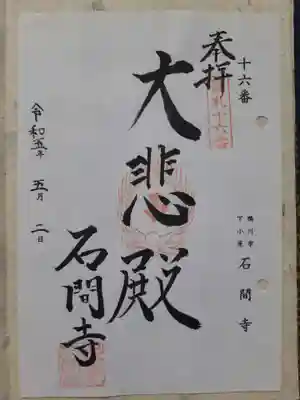 十六番
奉拝
大悲殿
鴨川市
下小原
石間寺
石間寺
令和五年 五月 二日